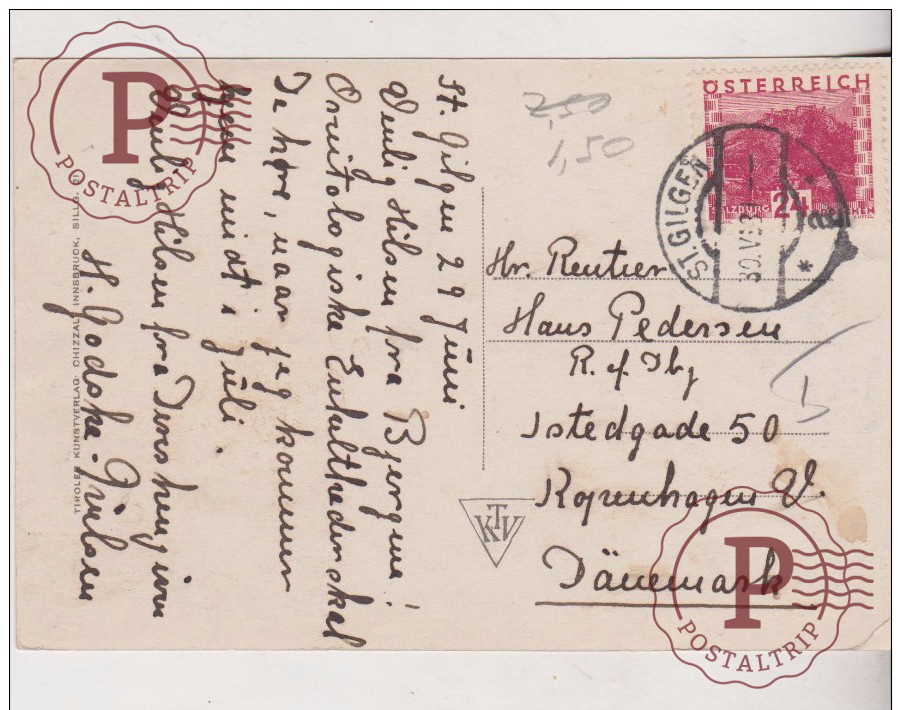 St. Gilgen 29 Juni
Venlig Hilsen fra Bjergene!
Ornitologiske Enkeltheder skal
De høre, naar jeg kommer
hjem midt i Juli.
Venlig Hilsen fra Deres hengivne
H. Godske-Nielsen
TIROLER KUNSTVERLAG CHIZZALI INNSBRUCK, SILLG.
2,50
1,50
ÖSTERREICH
SALZBURG 24
ST. GILGEN
30.VI.31
Hr. Rentier
Hans Pedersen
R. af Dbg
Istedgade 50
Kopenhagen V.
Dänemark
KTV
P
POSTALTRIP
P
POSTALTRIP